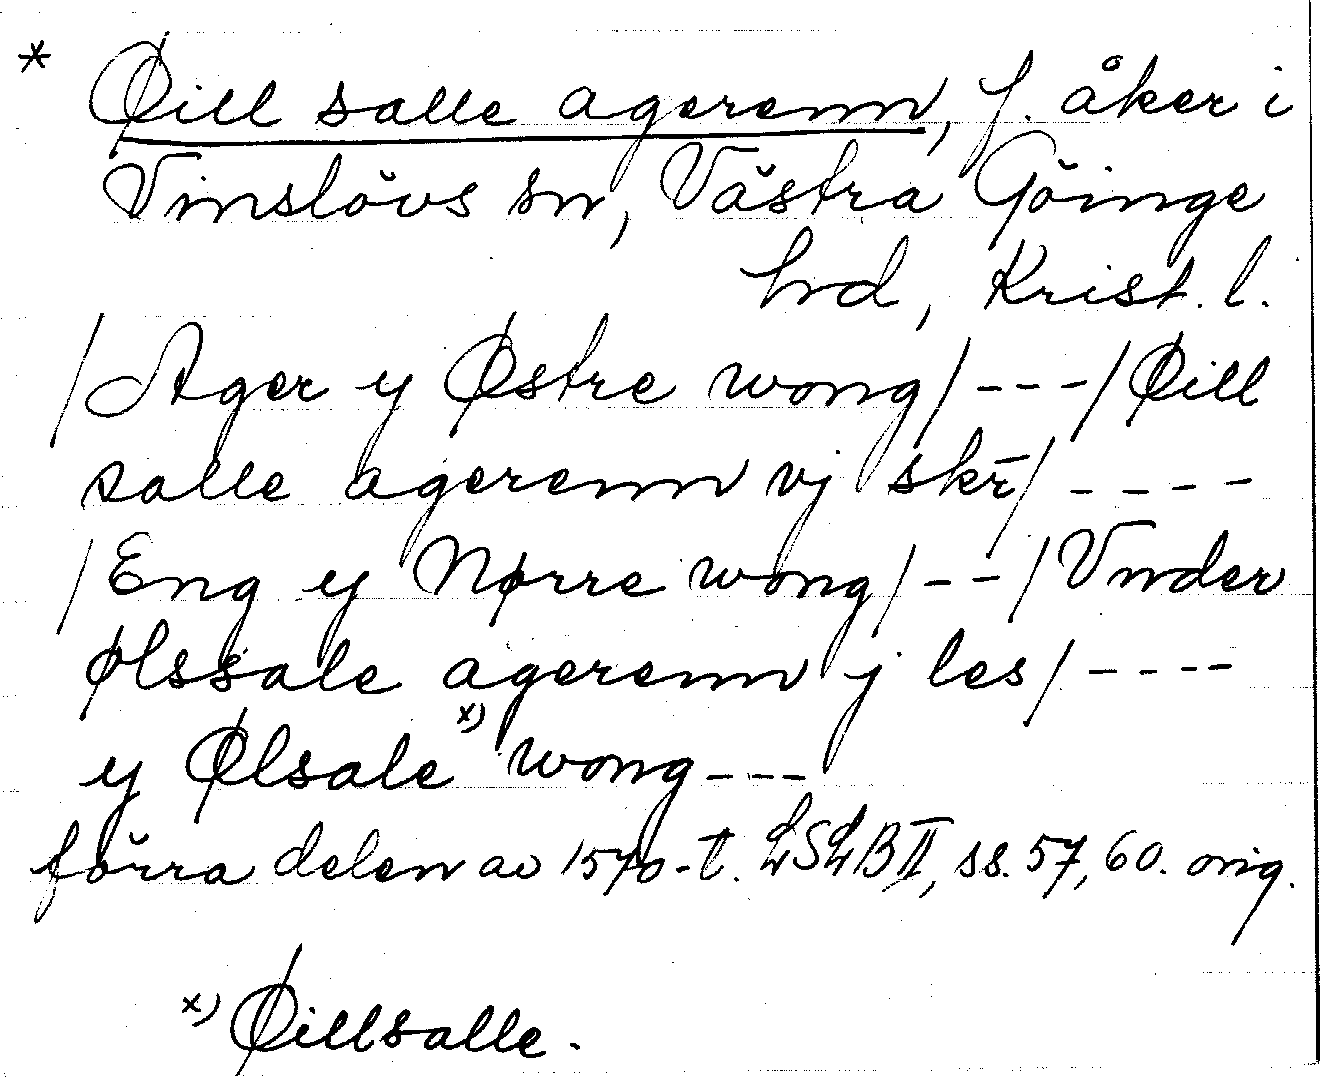 * Øill salle agerenn, f. åker i
Vinslövs sn, Västra Göinge
hrd, Krist. l.
/Ager y Østre wong/---/Øill
salle agerenn vj skr̄/----
/Eng y Nørre wong/--/Vnder
Ølssale agerenn j les/----
y Ølsale x) wong---
förra delen av 1570-t. LSLB II, ss. 57, 60. orig.
x) Øillsalle.